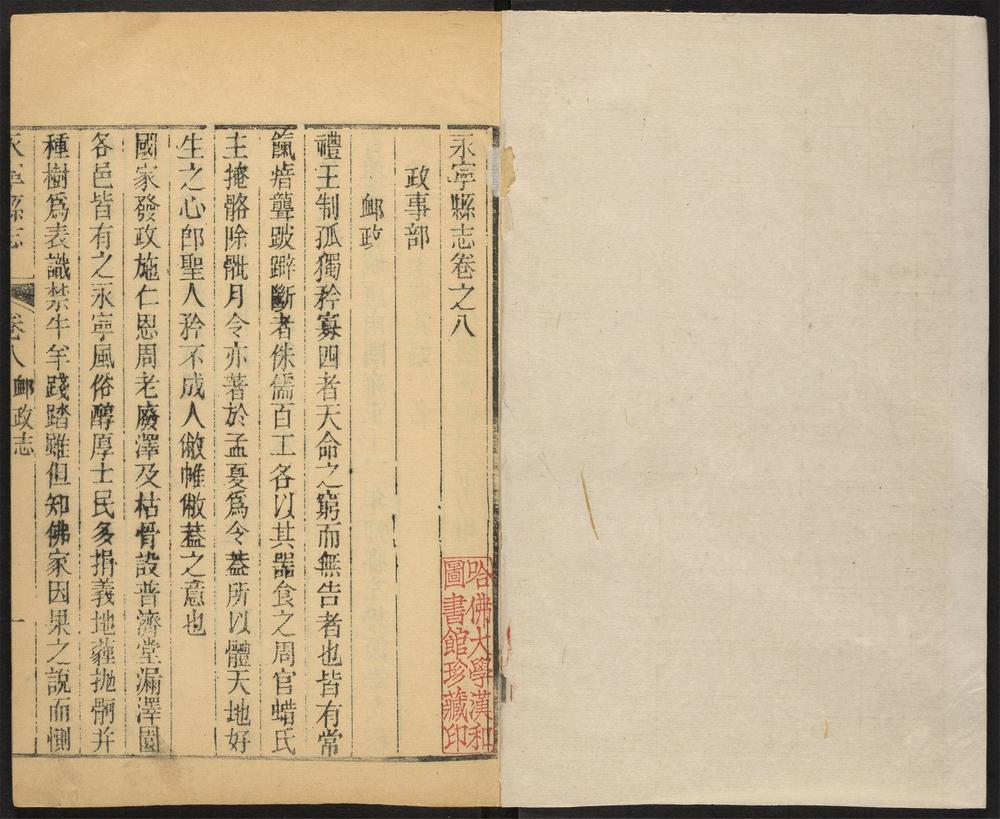 永寧縣志卷之八
政事部
卹政
禮王制孤獨矜寡四者天命之窮而無告者也皆有常
餼瘖聾跛躃斷者侏儒百工各以其器食之周官蜡氏
主掩骼除骴月令亦著於孟夏爲令葢所以體天地好
生之心卽聖人矜不成人敝帷敝葢之意也
國家發政施仁恩周老廢澤及枯骨設普濟堂漏澤園
各邑皆有之永寧風俗醇厚士民多捐義地薶拋骴并
種樹爲表識禁牛羊踐踏雖但知佛家因果之說而惻
永寧縣志 卷八 卹政志 一
哈佛大學漢和
圖書館珍藏印